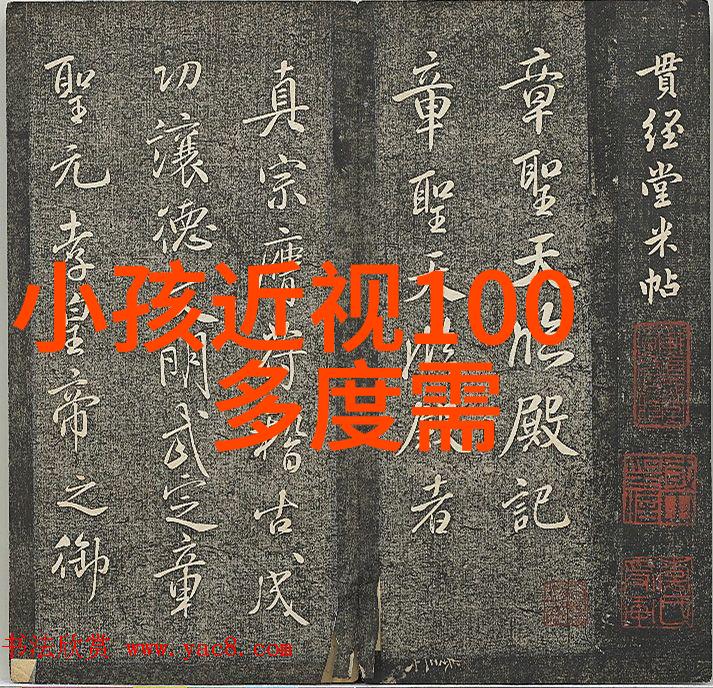 貫経堂米帖
章聖天臨殿記
章聖天臨殿者
真宗膺符稽古成
功讓德文明武定章
聖元孝皇帝之御
小孩近视100
多度需
书法欣赏 www.yac8.com